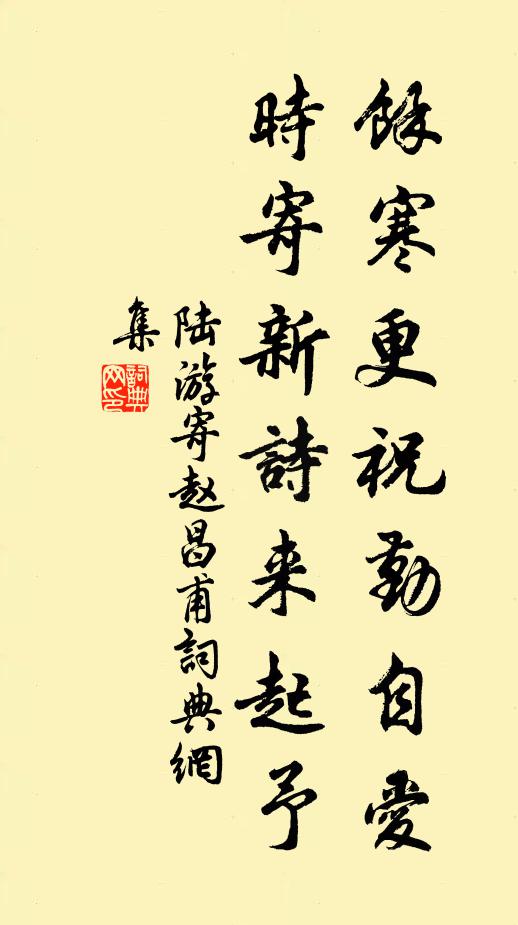 餘寒更祝勤自愛
時寄新詩来起予
陆游寄赵昌甫詞典網
集
詞典
网印